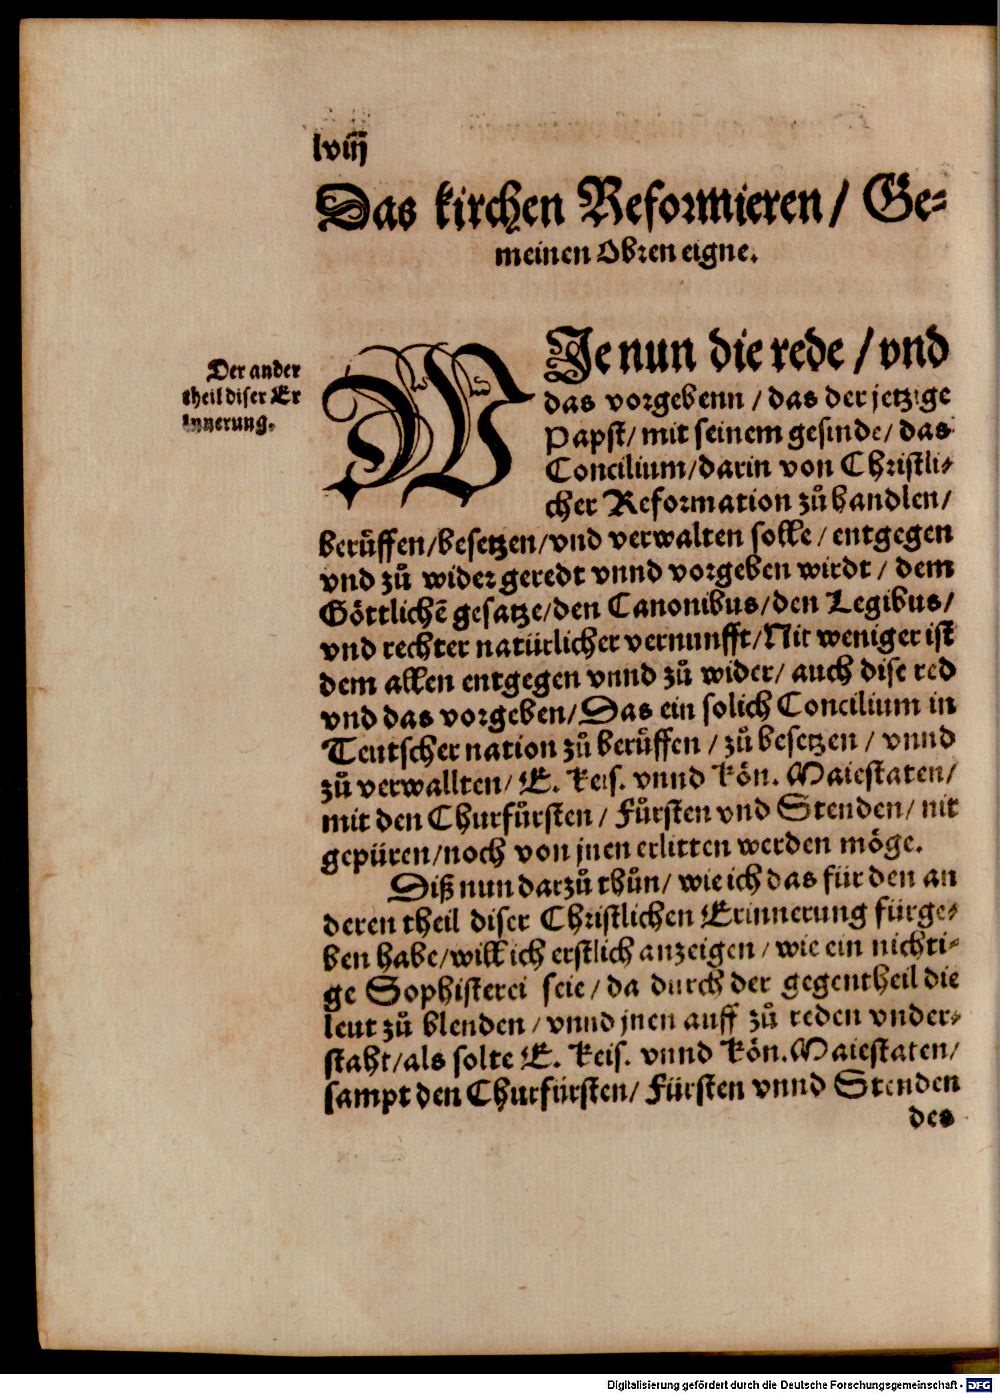 lviij
Das kirchen Reformieren/ Ge-
meinen Obren eigne.
Der ander
theil diser Er
innerung.
WJe nun die rede/ vnd
das vorgebenn/ das der jetzige
Papst/ mit seinem gesinde/ das
Concilium/ darin von Christli-
cher Reformation zů handlen/
berůffen/ besetzen/ vnd verwalten solle/ entgegen
vnd zů wider geredt vnnd vorgeben wirdt/ dem
Göttlichē gesatze/ den Canonibus/ den Legibus/
vnd rechter natürlicher vernunfft/ Nit weniger ist
dem allen entgegen vnnd zů wider/ auch dise red
vnd das vorgeben/ Das ein solich Concilium in
Teutscher nation zů berůffen/ zů besetzen/ vnnd
zů verwallten/ E. Keis. vnnd Kön. Maiestaten/
mit den Churfůrsten/ Fůrsten vnd Stenden/ nit
gepüren/ noch von jnen erlitten werden möge.
Diß nun darzů thůn/ wie ich das für den an
deren theil diser Christlichen Erinnerung fürge-
ben habe/ will ich erstlich anzeigen/ wie ein nichti-
ge Sophisterei seie/ da durch der gegentheil die
leut zů blenden/ vnnd jnen auff zů reden vnder-
staht/ als solte E. Keis. vnnd Kön. Maiestaten/
sampt den Churfürsten/ Fürsten vnnd Stenden
des
Digitalisierung gefördert durch die Deutsche Forschungsgemeinschaft - DFG